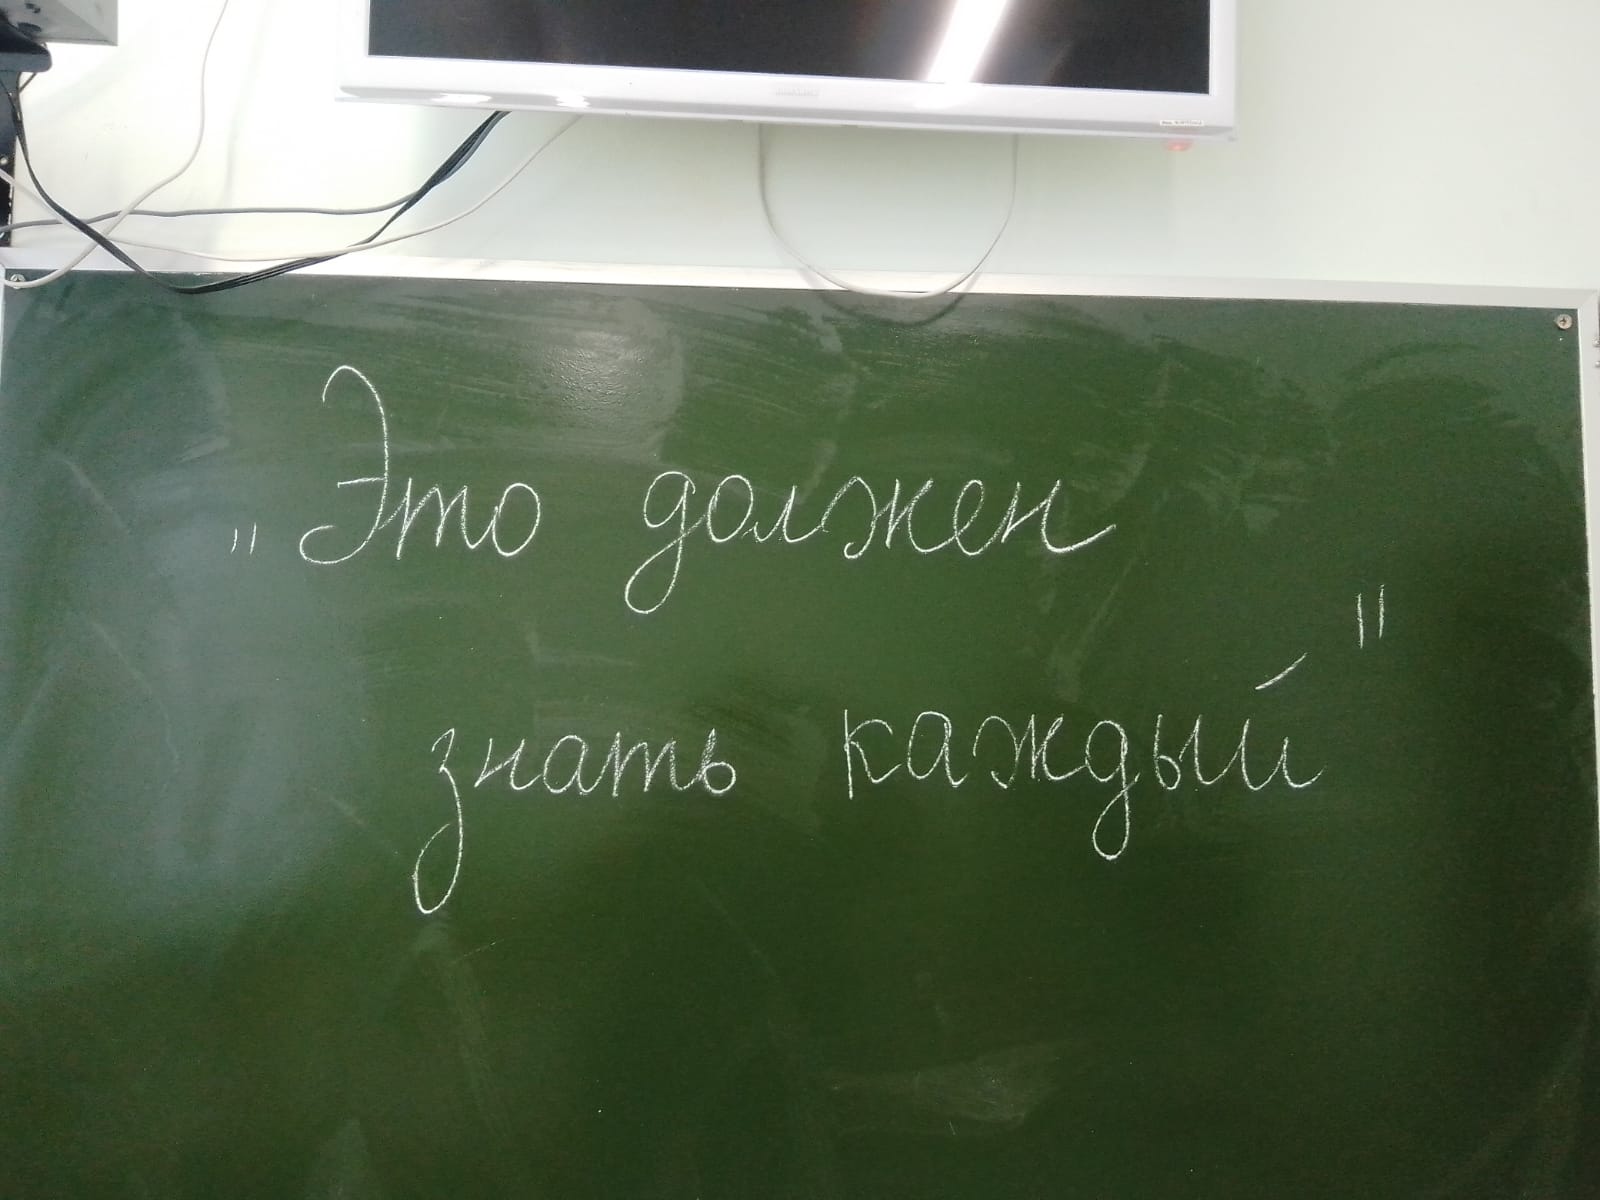 „Это должен
знать каждый"